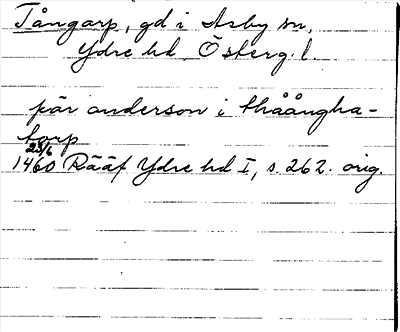 Tångarp, gd i Asby sn,
Ydre hd, Österg. l.
pär anderson i thåångha-
torp
23/6
1460 Rääf Ydre hd I, s. 262. orig.